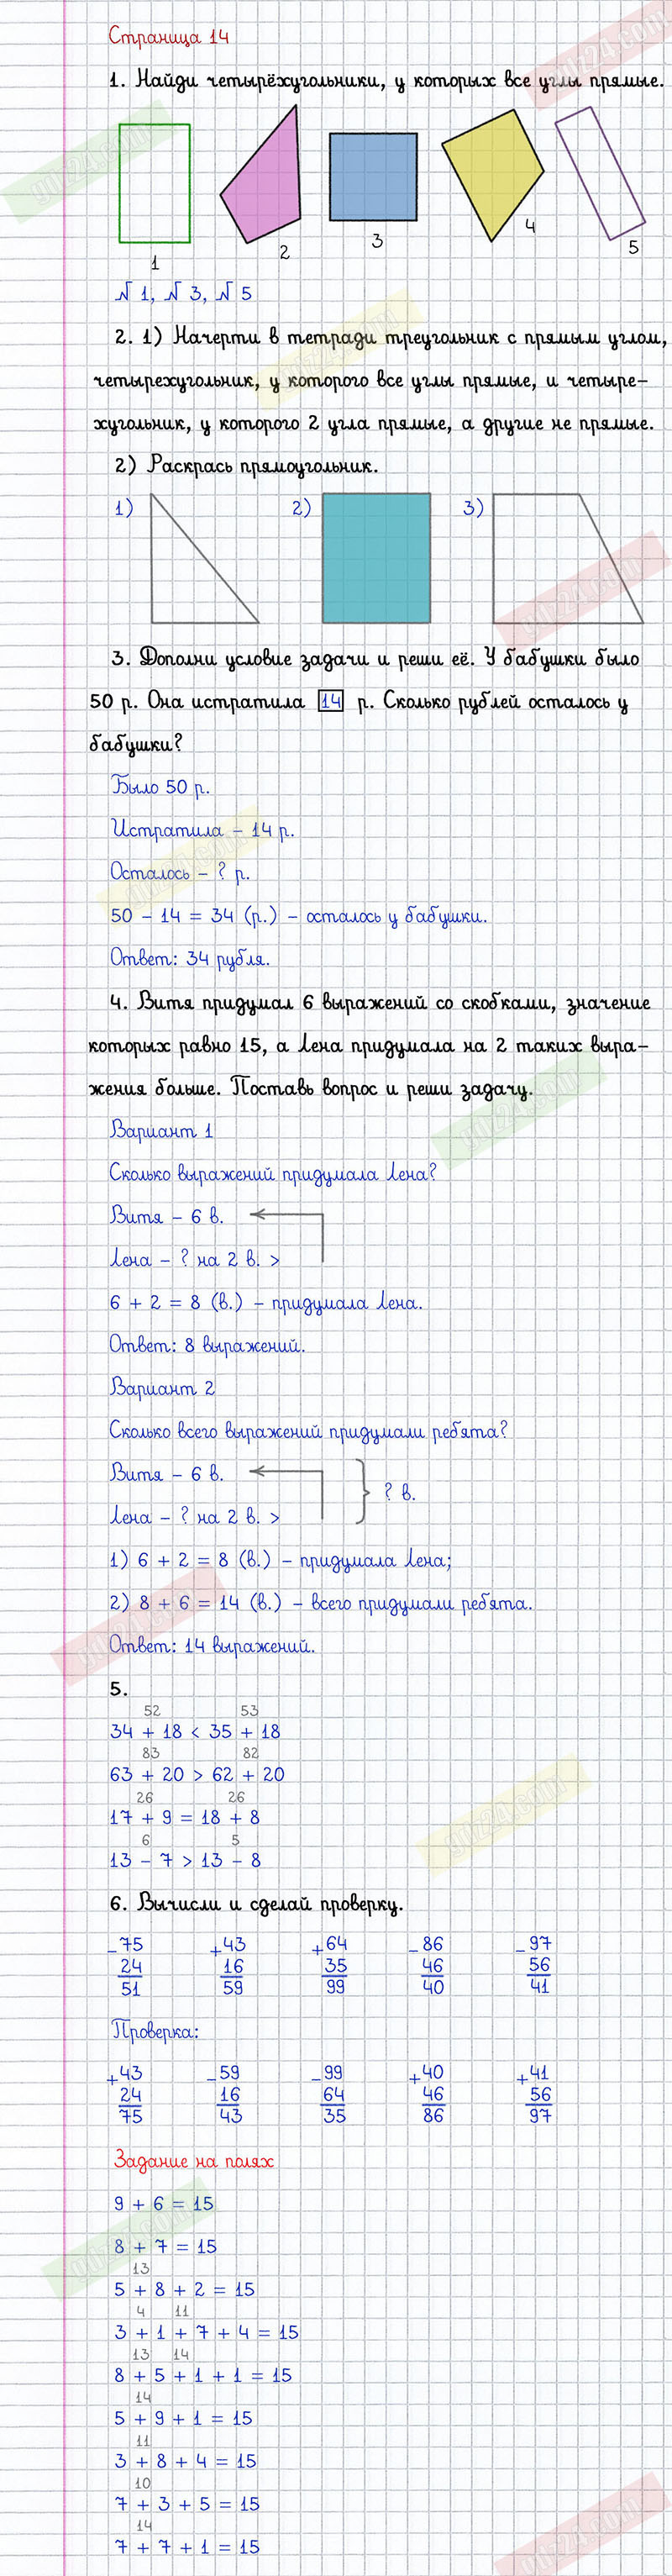 Страница 14
1. Найди четырёхугольники, у которых все углы прямые.
1 2 3 4 5
№ 1, № 3, № 5
2. 1) Начерти в тетради треугольник с прямым углом,
четырехугольник, у которого все углы прямые, и четыре-
хугольник, у которого 2 угла прямые, а другие не прямые.
2) Раскрась прямоугольник.
1) 2) 3)
3. Дополни условие задачи и реши её. У бабушки было
50 р. Она истратила 14 р. Сколько рублей осталось у
бабушки?
Было 50 р.
Истратила – 14 р.
Осталось – ? р.
50 – 14 = 34 (р.) – осталось у бабушки.
Ответ: 34 рубля.
4. Витя придумал 6 выражений со скобками, значение
которых равно 15, а Лена придумала на 2 таких выра-
жения больше. Поставь вопрос и реши задачу.
Вариант 1
Сколько выражений придумала Лена?
Витя – 6 в.
Лена – ? на 2 в. >
6 + 2 = 8 (в.) – придумала Лена.
Ответ: 8 выражений.
Вариант 2
Сколько всего выражений придумали ребята?
Витя – 6 в.
? в.
Лена – ? на 2 в. >
1) 6 + 2 = 8 (в.) – придумала Лена;
2) 8 + 6 = 14 (в.) – всего придумали ребята.
Ответ: 14 выражений.
5.
52 53
34 + 18 < 35 + 18
83 82
63 + 20 > 62 + 20
26 26
17 + 9 = 18 + 8
6 5
13 – 7 > 13 – 8
6. Вычисли и сделай проверку.
– 75 + 43 + 64 – 86 – 97
24 16 35 46 56
51 59 99 40 41
Проверка:
+ 43 – 59 – 99 + 40 + 41
24 16 64 46 56
75 43 35 86 97
Задание на полях
9 + 6 = 15
8 + 7 = 15
13
5 + 8 + 2 = 15
4 11
3 + 1 + 7 + 4 = 15
13 14
8 + 5 + 1 + 1 = 15
14
5 + 9 + 1 = 15
11
3 + 8 + 4 = 15
10
7 + 3 + 5 = 15
14
7 + 7 + 1 = 15
gdz24.com